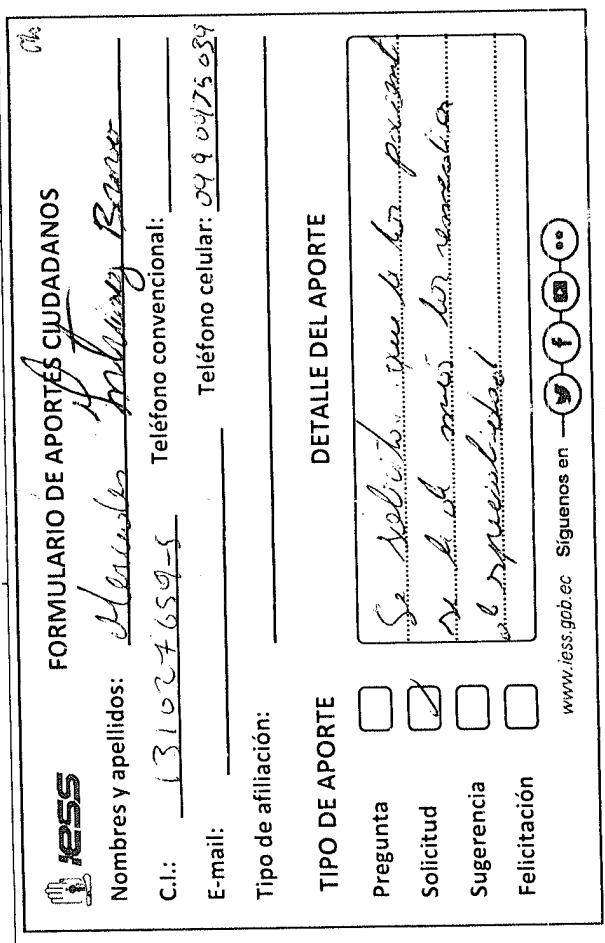 iess
FORMULARIO DE APORTES CIUDADANOS
Nombres y apellidos: Mercedes
C.I.: 131027659-5 Teléfono convencional:
E-mail: Teléfono celular:
Tipo de afiliación:
TIPO DE APORTE
Pregunta
Solicitud
Sugerencia
Felicitación
DETALLE DEL APORTE
Se solicita que a los pacient
se le de más los remedios
especialidad
www.iess.gob.ec Síguenos en